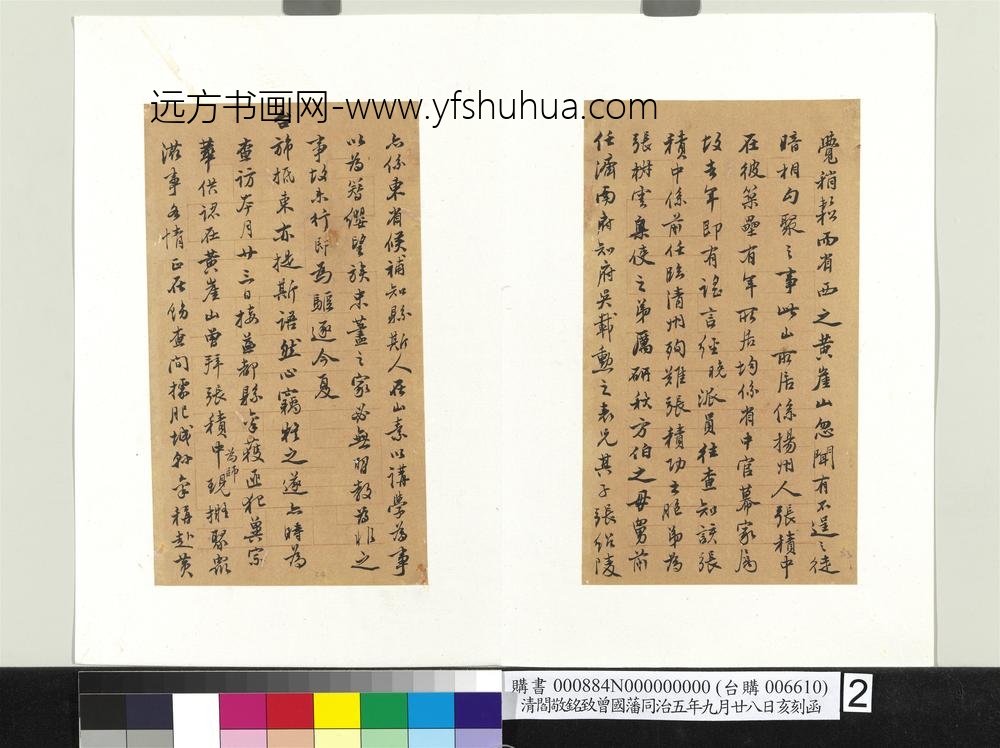 远方书画网-www.yfshuhua.com
覺稍鬆而省西之黃崖山忽聞有不逞之徒
暗相勾聚之事此山所居係揚州人張積中
在彼築壘有年所居均係省中官幕家屬
故去年即有謠言經晚派員往查知該張
積中係前任臨清州殉難張積功之胞弟為
張樹雲臬使之弟厲研秋方伯之母舅前
任濟南府知府吳載勳之表兄其子張紹陵
亦係東省候補知縣斯人在山素以講學為事
以為簪纓望族束薑之家必無習教為非之
事故未行即為驅逐今夏
台旆抵東亦提斯語然心竊疑之遂亦時為
查訪本月廿三日接益都縣拿獲匪犯冀宗
華供認在黃崖山曾拜張積中為師現擬聚眾
滋事各情正在飭查間據肥城縣稟稱赴黃
購書 000884N000000000 (台購 006610)
清閻敬銘致曾國藩同治五年九月廿八日亥刻函
2